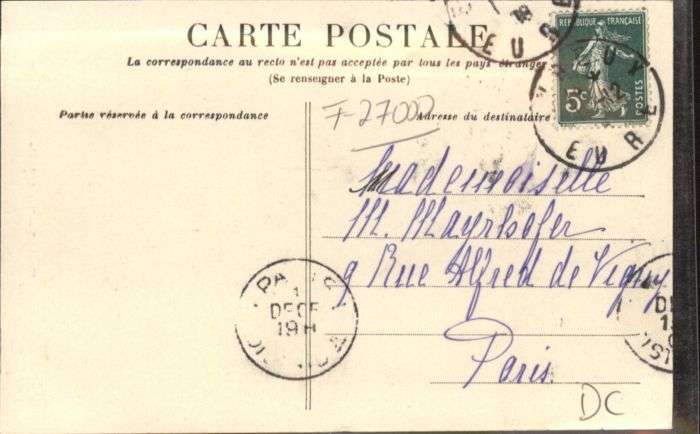 CARTE POSTALE
La correspondance au recto n'est pas acceptée par tous les pays étrangers
(Se renseigner à la Poste)
Partie réservée à la correspondance
Adresse du destinataire
F-27000
REPUBLIQUE FRANÇAISE
5c
POSTES
EURE
EURE
Mademoiselle
M. Mayrhofer
9 Rue Alfred de Vigny
Paris
PARIS
1
DECE
19H
DC